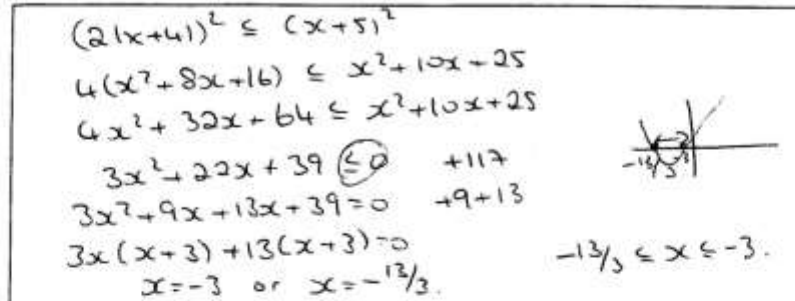 (2|x+4|)² ≤ (x+5)²
4(x²+8x+16) ≤ x²+10x+25
4x²+32x+64 ≤ x²+10x+25
3x²+22x+39 ≤0 +117
3x²+9x+13x+39=0 +9+13
3x(x+3)+13(x+3)=0
x=-3 or x=-13/3.
-13/3 3
-13/3 ≤ x ≤ -3.